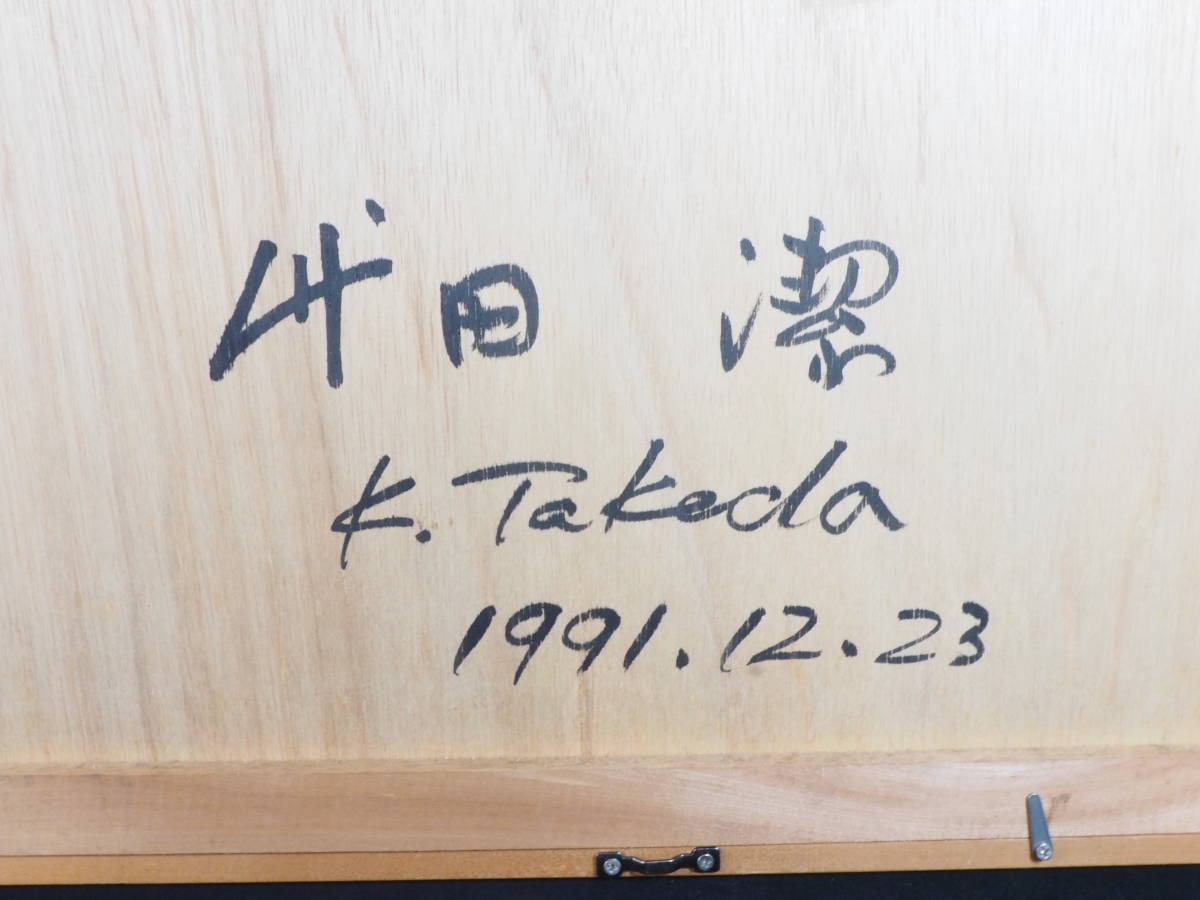 代田 潔
K. Takeda
1991.12.23